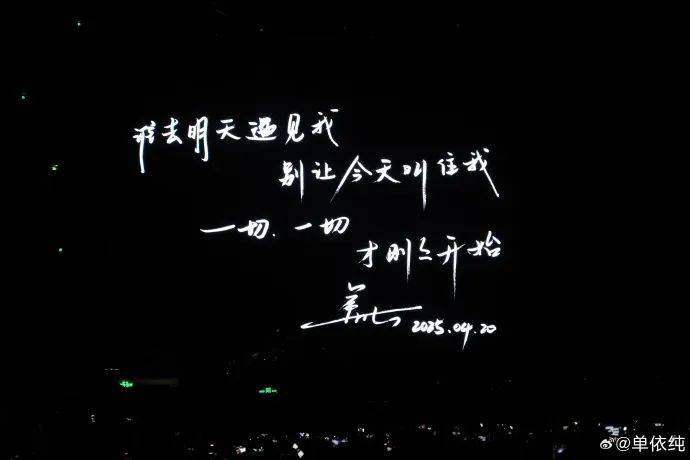 去明天遇见我
别让今天叫住我
一切、一切
才刚々开始
2025.04.20
@单依纯